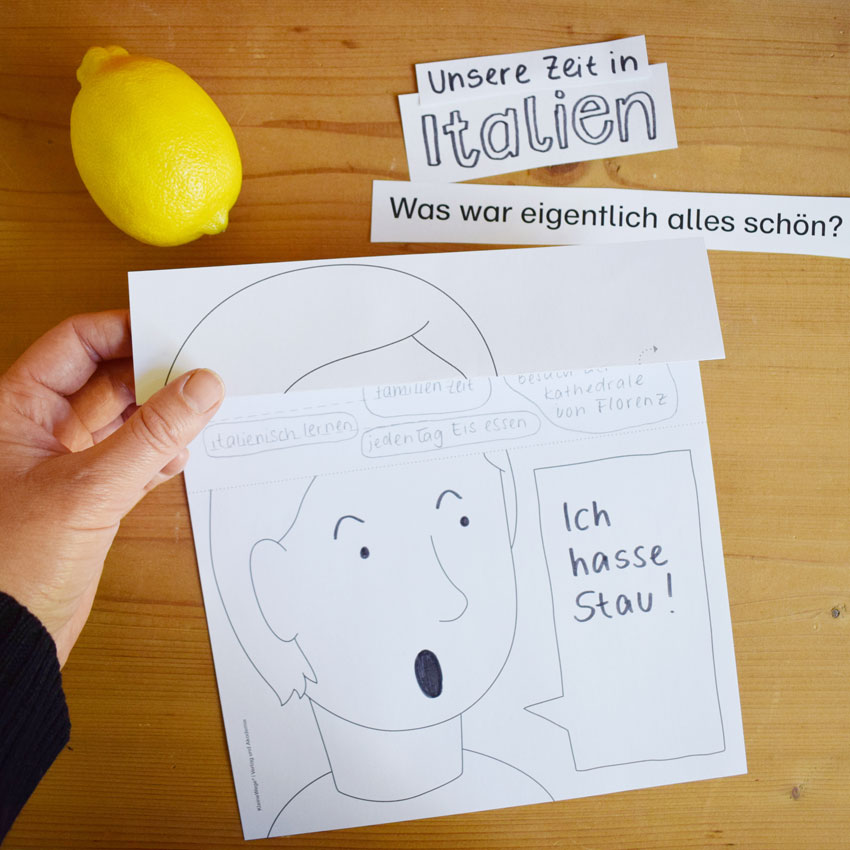 Unsere Zeit in
Italien
Was war eigentlich alles schön?
familienzeit
Besuch der
Kathedrale
von Florenz
italienisch lernen
jeden Tag Eis essen
Ich
hasse
Stau!
KleineWege® | Verlag und Akademie